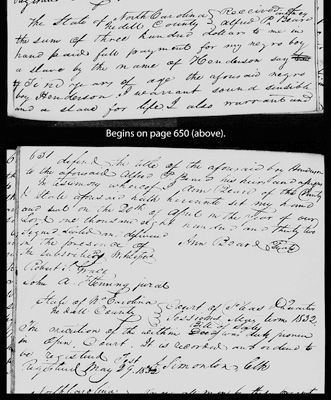 The State of North Carolina Received
Iredell County Alfred P. Beard
the sum of three hundred dollars to me in
hand paid full payment for my negro boy
a slave by the name of Henderson say
years of age the aforesaid negro
boy Henderson I warrant sound
and a slave for life I also warrant and
Begins on page 650 (above).
651 defend the title of the aforesaid boy Henderson
to the aforesaid Alfred P. Beard his heirs and assigns
In testimony whereof I Ann Beard of the County
& State aforesaid hath hereunto set my hand
and seal on the 20th of April in the year of our
Lord one thousand eight hundred and thirty two
Signed sealed and delivered
in the presence of Ann Beard Seal
the subscribing Witnesses
Robert
John A. Fleming jurat
State of N Carolina Court of Pleas & Quarter
Iredell County Sessions May Term 1832
The execution of the within Bill of Sale proven
in Open Court. It is recorded and ordered to
be registered Test Simonton Clk
Registered May 29. 1832
North Carolina